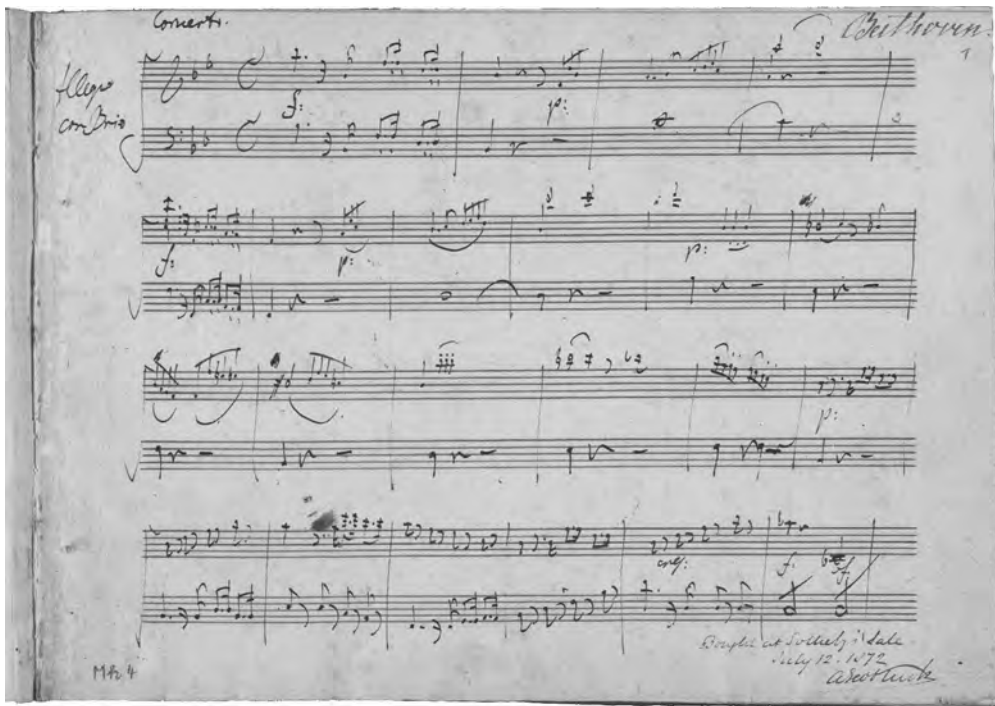 Concerto.
Beethoven.
1
Allegro
con Brio
f:
p:
f:
p:
p:
p:
cresc:
f:
f:
Bought at Sotheby's Sale
July 12. 1872
Mh 4